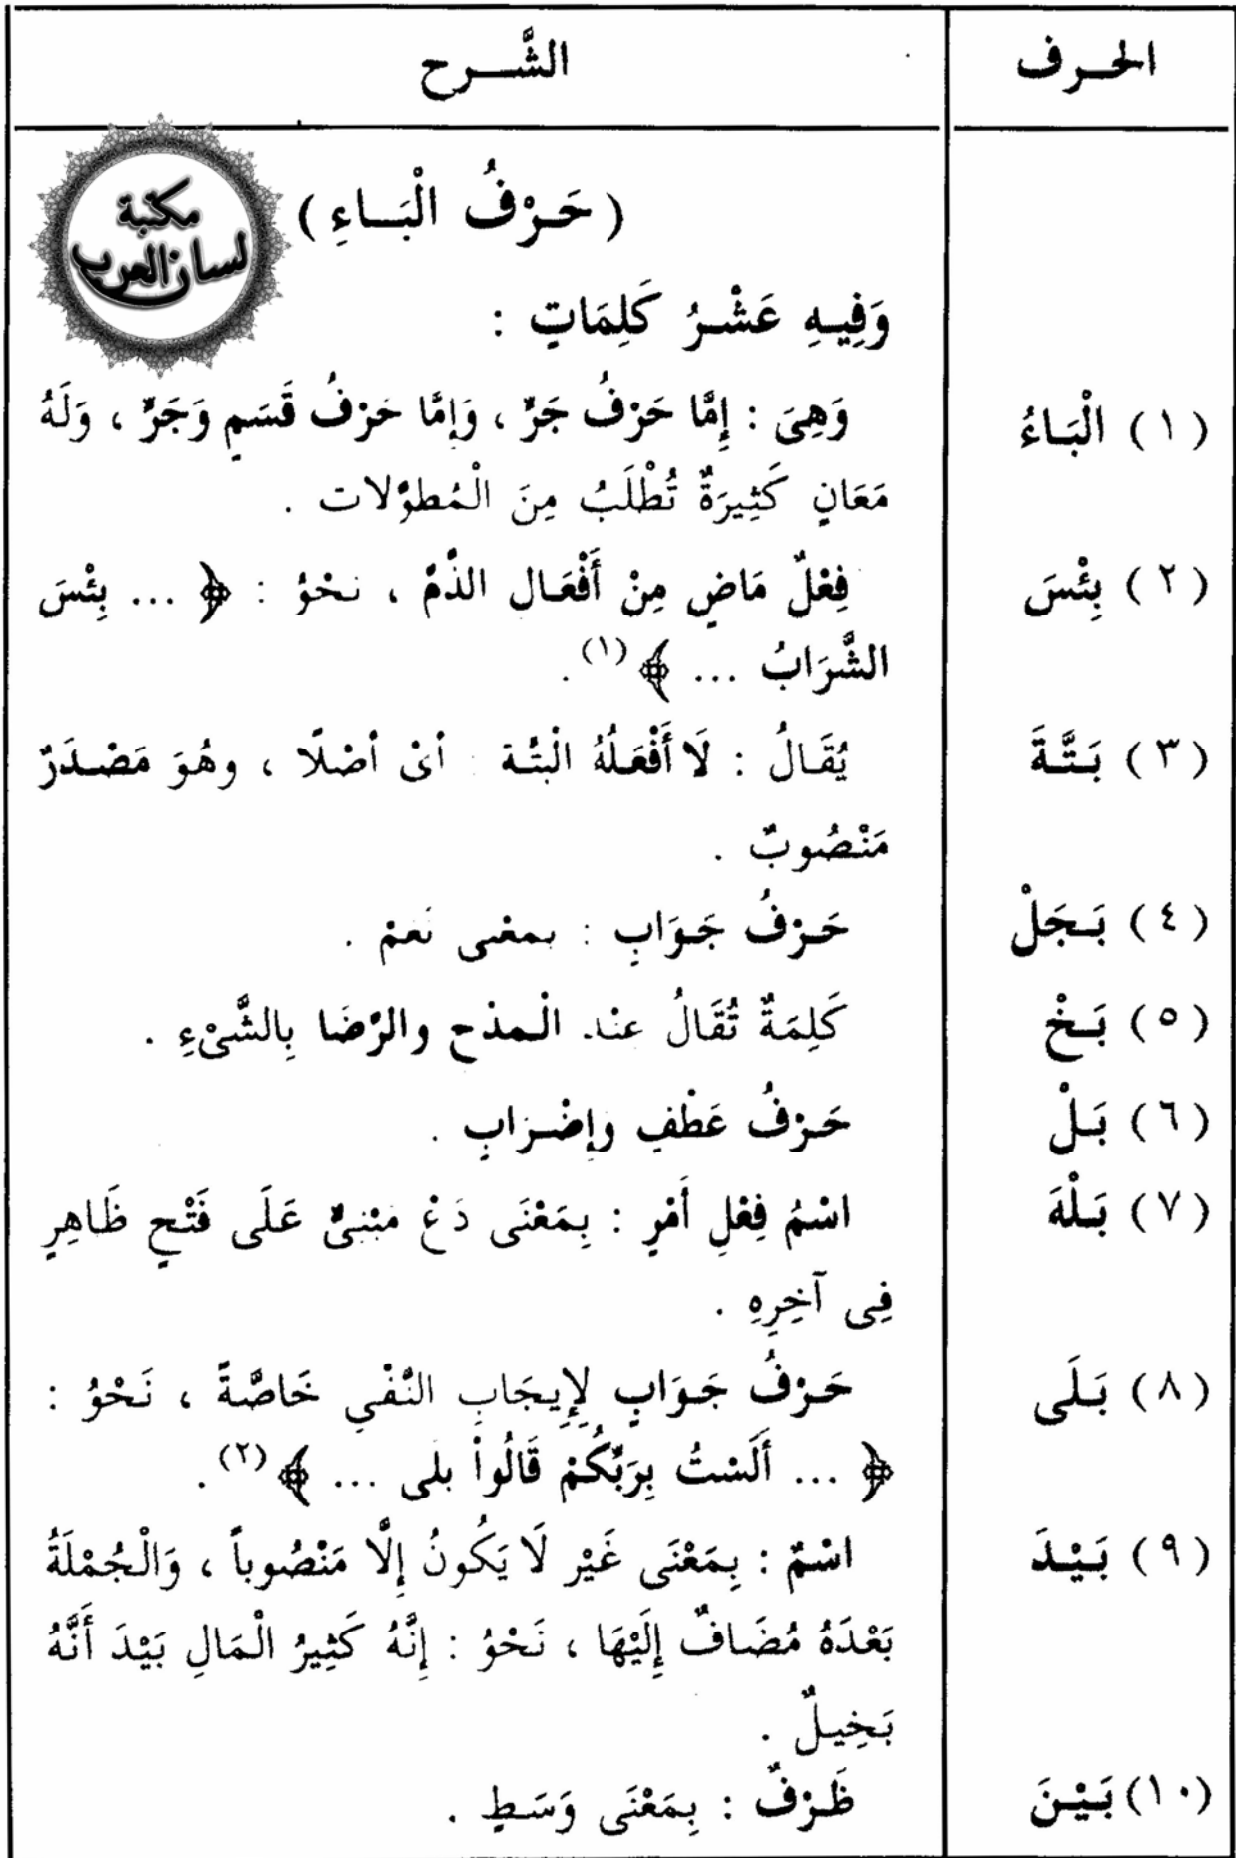 الحرف الشَّرح
مكتبة
لسان العرب
( حَرْفُ الْبَاءِ )
وَفِيهِ عَشْرُ كَلِمَاتٍ :
( ١ ) الْبَاءُ وَهِىَ : إِمَّا حَرْفُ جَرٍّ ، وَإِمَّا حَرْفُ قَسَمٍ وَجَرٍّ ، وَلَهُ
مَعَانٍ كَثِيرَةٌ تُطْلَبُ مِنَ الْمُطوَّلات .
( ٢ ) بِئْسَ فِعْلٌ مَاضٍ مِنْ أَفْعَال الذَّمِّ ، نحْوُ : ﴿ ... بِئْسَ
الشَّرَابُ ... ﴾ (١) .
( ٣ ) بَتَّةَ يُقَالُ : لَا أَفْعَلُهُ الْبتَّة : أىْ أصْلًا ، وهُوَ مَصْدَرٌ
مَنْصُوبٌ .
( ٤ ) بَجَلْ حَرْفُ جَوَابٍ : بمعْنى نَعمْ .
( ٥ ) بَخْ كَلِمَةٌ تُقَالُ عنْد الْمدْح والرِّضَا بِالشَّىْءِ .
( ٦ ) بَلْ حَرْفُ عَطْفٍ وإضْرَابٍ .
( ٧ ) بَلْهَ اسْمُ فِعْلِ أَمْرٍ : بِمَعْنَى دَعْ مَبْنىٌّ عَلَى فَتْحٍ ظَاهِرٍ
فِى آخِرِهِ .
( ٨ ) بَلَى حَرْفُ جَوَابٍ لِإِيجَابِ النَّفْىِ خَاصَّةً ، نَحْوُ :
﴿ ... أَلَسْتُ بِرَبِّكُمْ قَالُواْ بلى ... ﴾ (٢) .
( ٩ ) بَيْدَ اسْمٌ : بِمَعْنَى غَيْر لَا يَكُونُ إِلَّا مَنْصُوباً ، وَالْجُمْلَةُ
بَعْدَهُ مُضَافٌ إِلَيْهَا ، نَحْوُ : إِنَّهُ كَثِيرُ الْمَالِ بَيْدَ أَنَّهُ
بَخِيلٌ .
(١٠) بَيْنَ ظَرْفٌ : بِمَعْنَى وَسَطٍ .